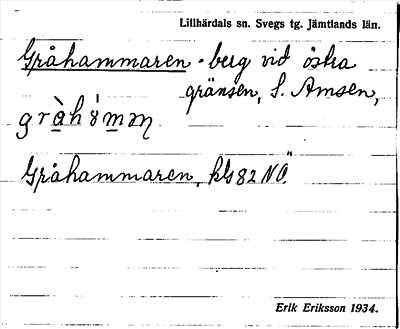 Lillhärdals sn. Svegs tg. Jämtlands län.
Gråhammaren - berg vid östra
gränsen, S. Amsen,
Gråhammaren, kbl 82 NÖ.
Erik Eriksson 1934.